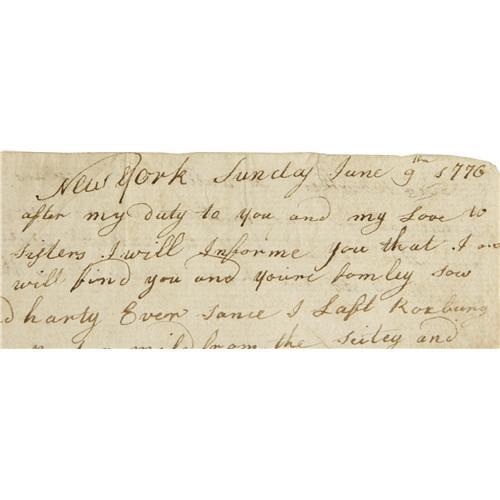 New York Sunday June 9th 1776
after my duty to you and my Love to
sisters I will Informe you that I am
will find you and youre famley sow
d harty Ever sance I Laft Roxbury
mild from the seitey and